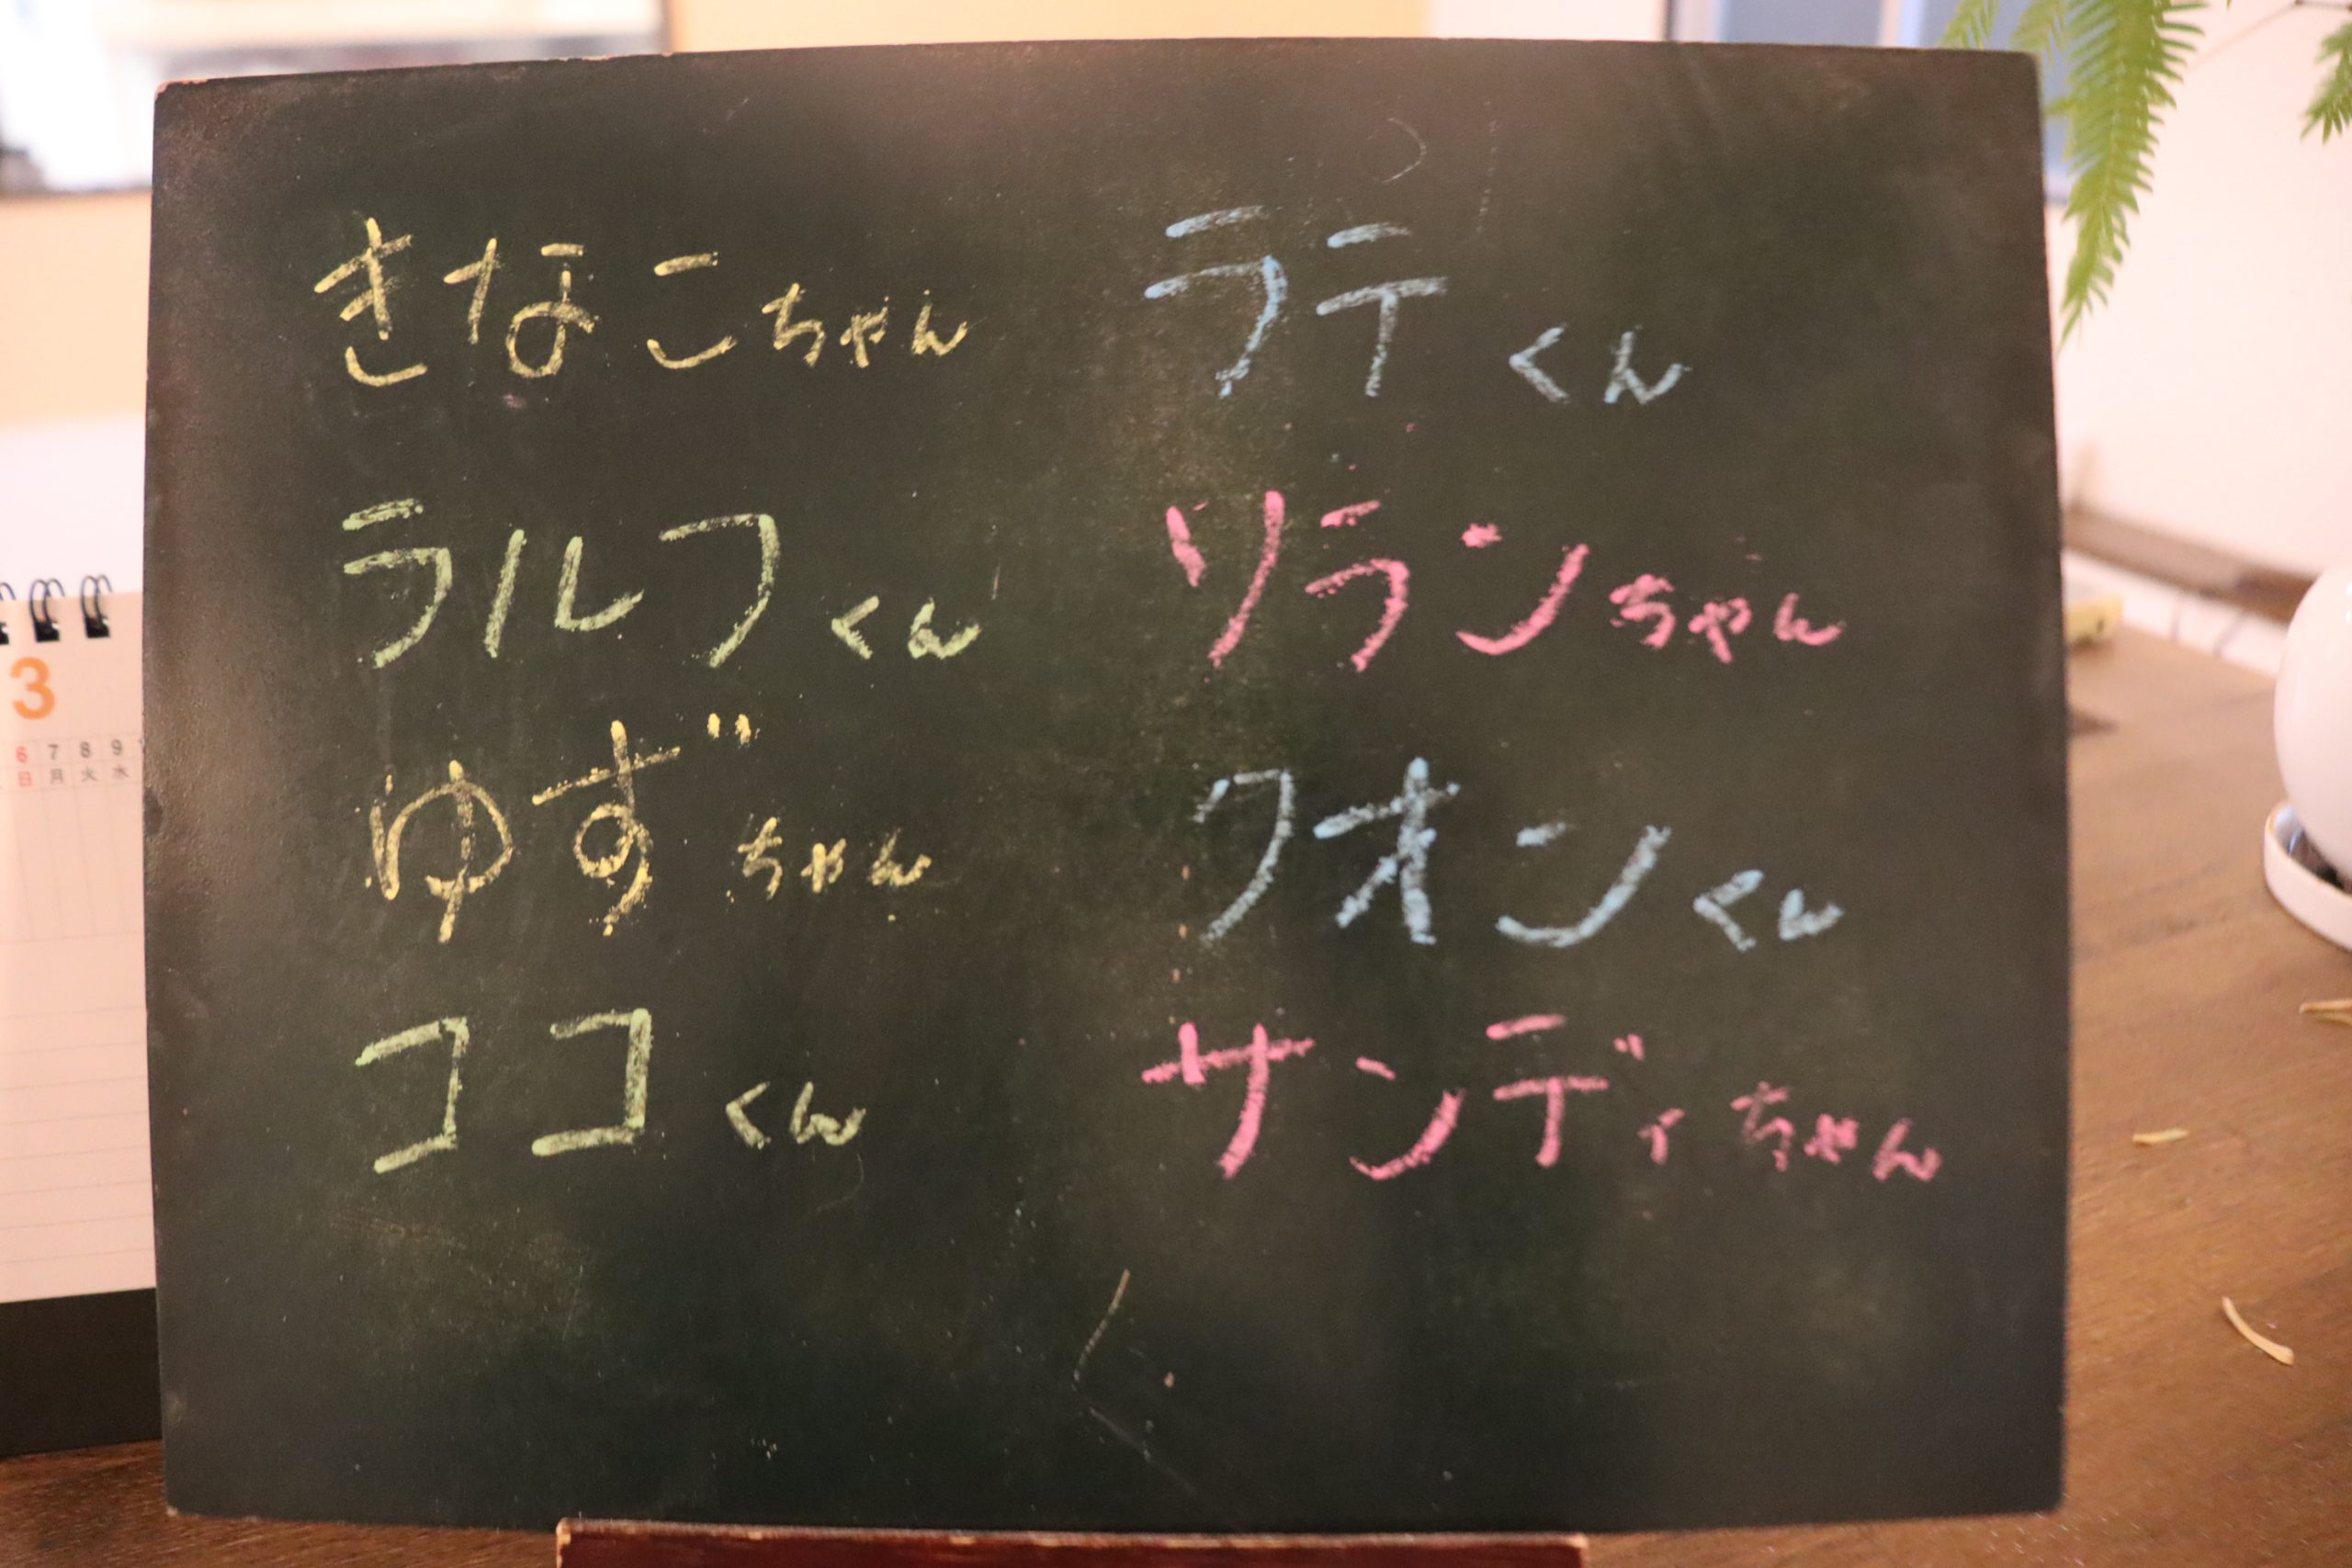 きなこちゃん
ラルフくん
ゆずちゃん
ココくん
ラテくん
ソランちゃん
クオンくん
サンディちゃん
3
6 7 8 9
日 月 火 水